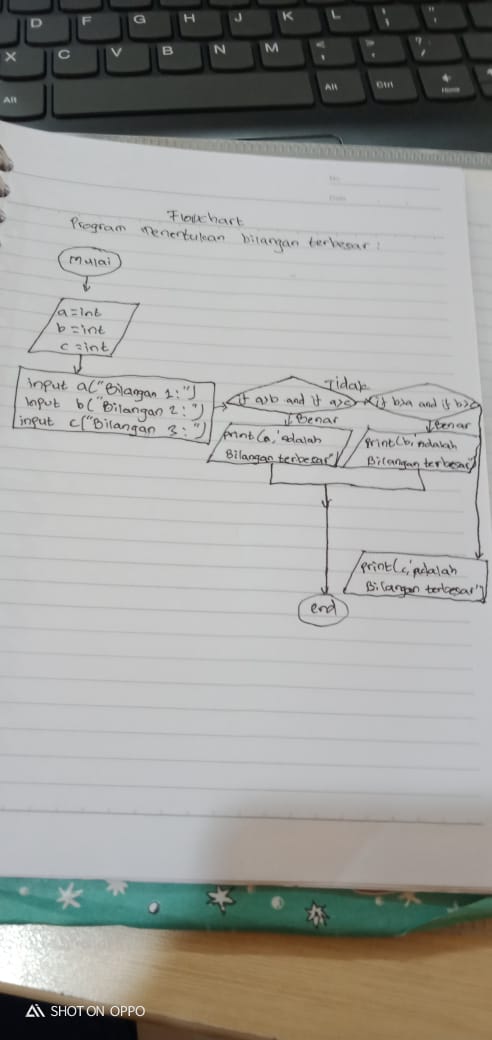 D F G H J K L : "
X C V B N M < > ? /
Alt Alt Ctrl Home
No
Date
Flowchart
Program menentukan bilangan terbesar :
Mulai
a = int
b = int
c = int
input a("Bilangan 1:")
Input b("Bilangan 2:")
input c("Bilangan 3:")
Tidak
if a>b and if a>c
if b>a and if b>c
Benar
Benar
print(a,'adalah
Bilangan terbesar")
Print(b,'adalah
Bilangan terbesar"
print(c,'adalah
Bilangan terbesar")
end
SHOT ON OPPO